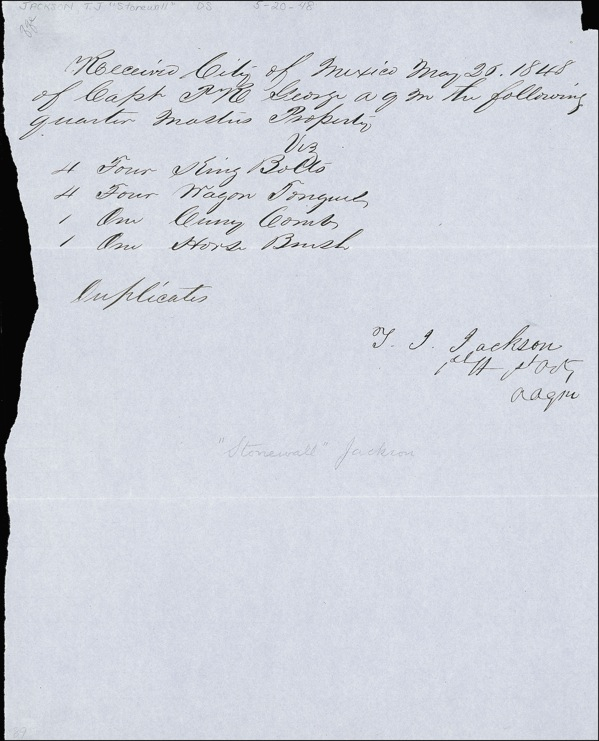 JACKSON, T.J "Stonewall" DS 5-20-48
Received City of Mexico May 20. 1848
of Capt P.H. George a q m the following
quarter Masters Property
Viz
4 Four King Bolts
4 Four Wagon Tongues
1 One Curry Comb
1 One Horse Brush
Duplicates
T. J. Jackson
1st Lt 1st Arty
a a q m
"Stonewall" Jackson